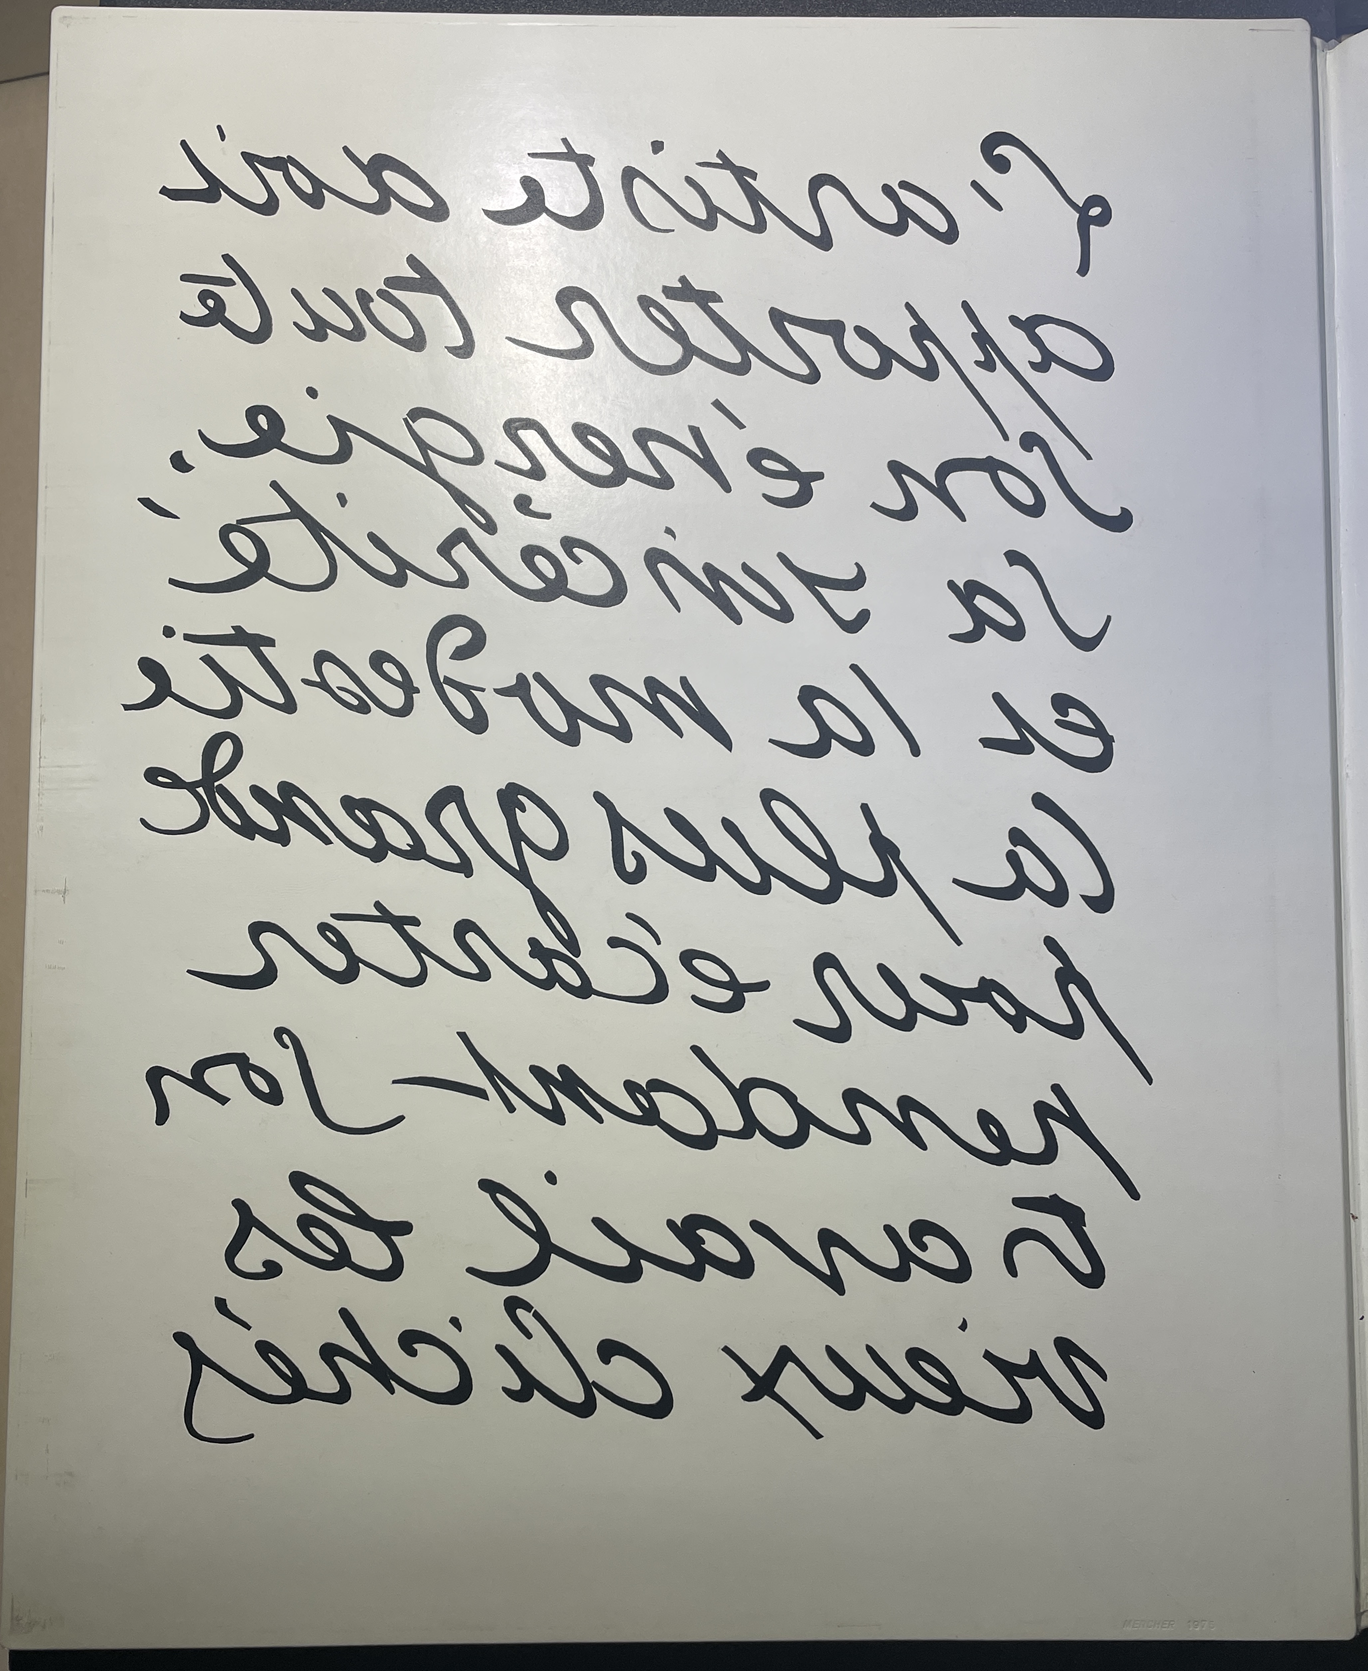 L'artiste doit
apporter toute
son énergie.
sa sincérité
et la modestie
la plus grande
pour écarter
pendant son
travail les
vieux clichés